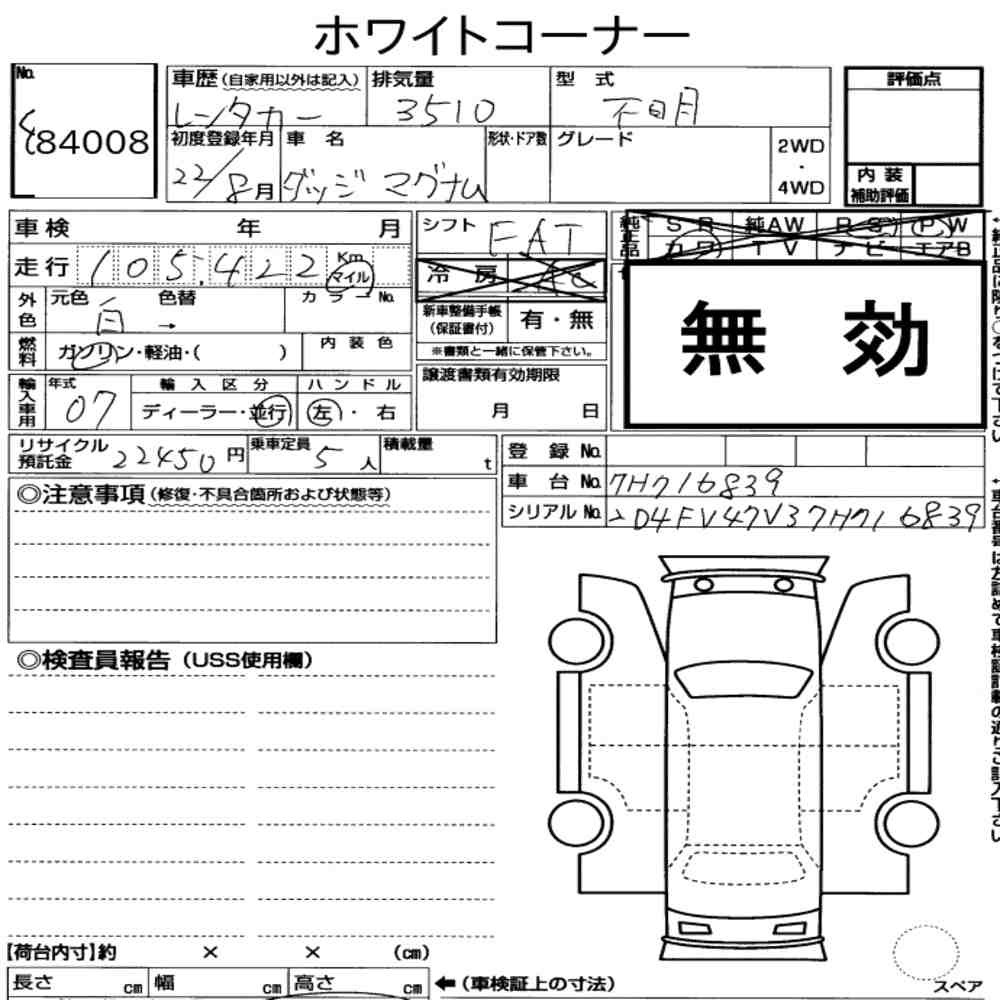 ホワイトコーナー
No.
84008
車歴(自家用以外は記入)
レンタカー
排気量
3510
型 式
不明
評価点
初度登録年月
22/8月
車 名
ダッジ マグナム
形状・ドア数
グレード
2WD
・
4WD
内 装
補助評価
車検 年 月
シフト
FAT
純正品
S R 純AW R S P W
カワ T V ナビ エアB
走行
105,422
Km
マイル
冷 房
A C
外色
元色
白
色替
→
カラーNo.
新車整備手帳
(保証書付)
有・無
※書類と一緒に保管下さい。
無 効
燃料
ガソリン・軽油・( )
内 装 色
譲渡書類有効期限
月 日
輸入車用
年式
07
輸 入 区 分
ディーラー・並行
ハ ン ド ル
左・右
リサイクル
預託金
22450円
乗車定員
5人
積載量
t
登 録 No.
車 台 No.
7H716839
シリアル No.
2D4FV47V37H716839
◎注意事項(修復・不具合箇所および状態等)
◎検査員報告(USS使用欄)
【荷台内寸】約 × × (cm)
長さ cm 幅 cm 高さ cm
←(車検証上の寸法)
スペア